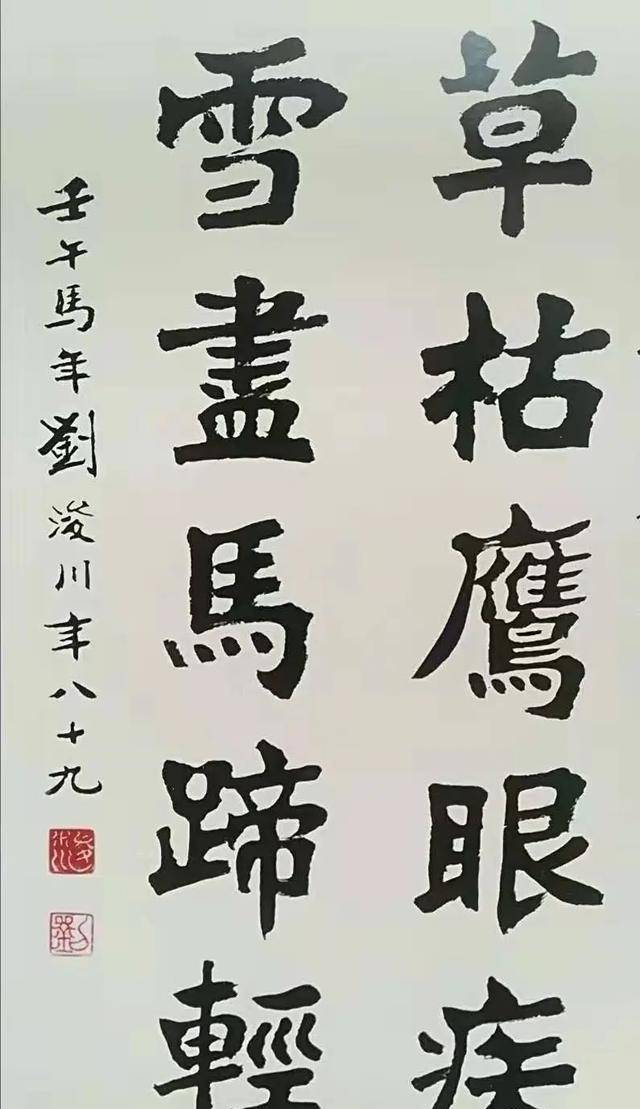 草枯鷹眼疾
雪盡馬蹄輕
壬午馬年劉浚川年八十九